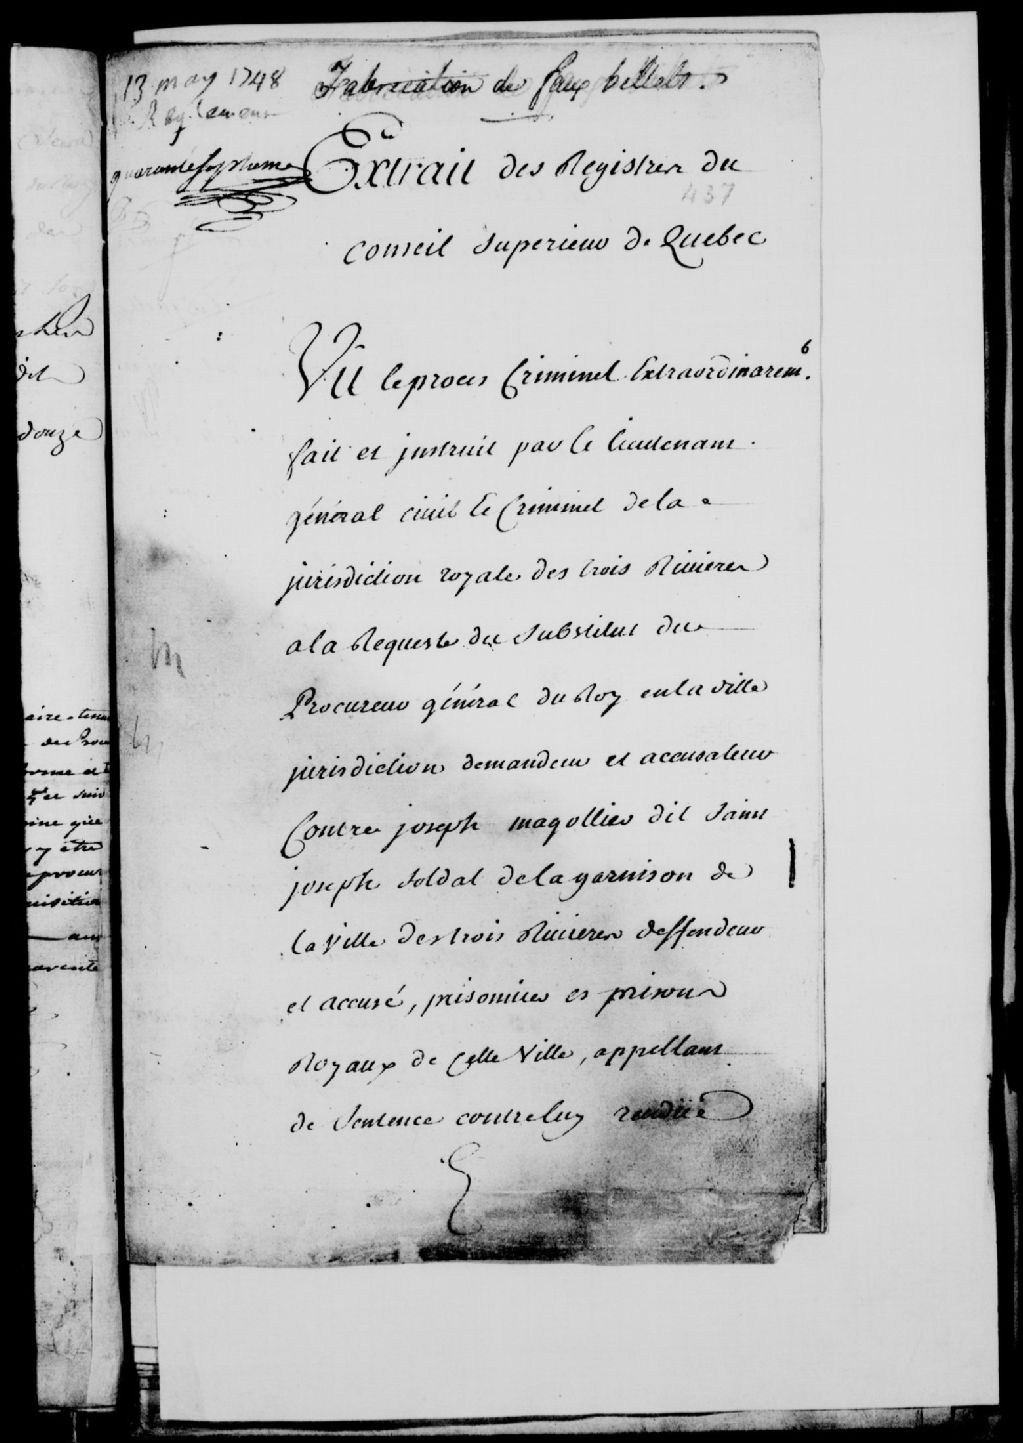 13 may 1748
Reglement
quarante septieme
Fabrication de faux billets.
Extrait des Registres du
437
Conseil Superieur de Quebec
Vû le proces Criminel Extraordinarem.
fait et instruit par le lieutenant
général civil et Criminel de la
jurisdiction royale des trois Rivieres
a la Requeste du Substitut du
Procureur général du Roy en la ditte
jurisdiction demandeur et accusateur
Contre joseph magollier dit Saint
joseph Soldat de la garnison de
la Ville des trois Rivieres deffendeur
et accusé, prisonnier es prisons
Royaux de cette Ville, appellant
de Sentence contre luy rendüe
douze